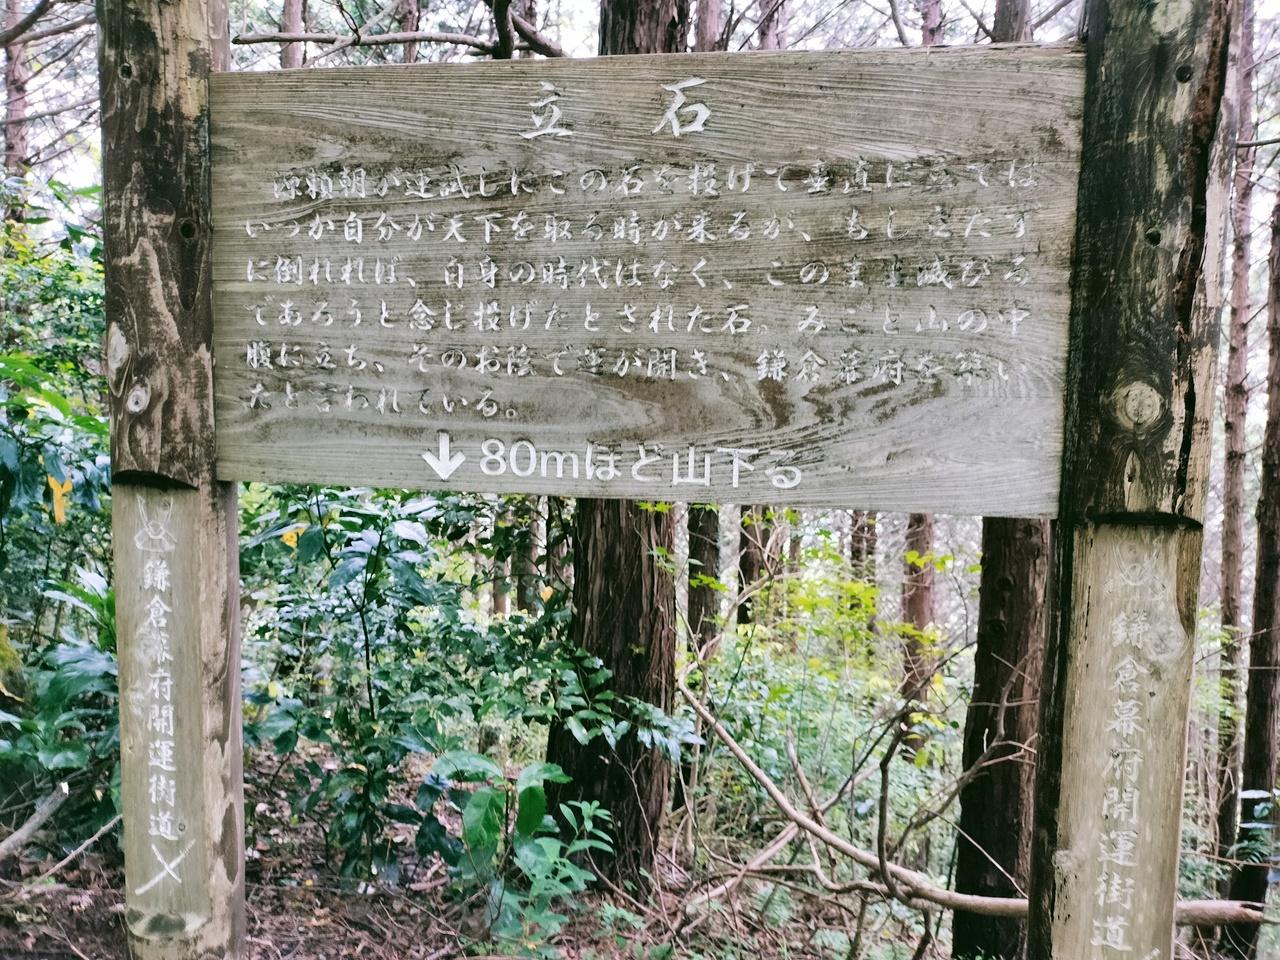 立石
源頼朝が運試しにこの石を投げて垂直に立てば
いつか自分が天下を取る時が来るが、もし立たず
に倒れれば、自身の時代はなく、このまま滅びる
であろうと念じ投げたとされた石。みごと山の中
腹に立ち、そのお陰で運が開き、鎌倉幕府を築い
たと言われている。
↓80mほど山下る
鎌倉幕府開運街道
鎌倉幕府開運街道